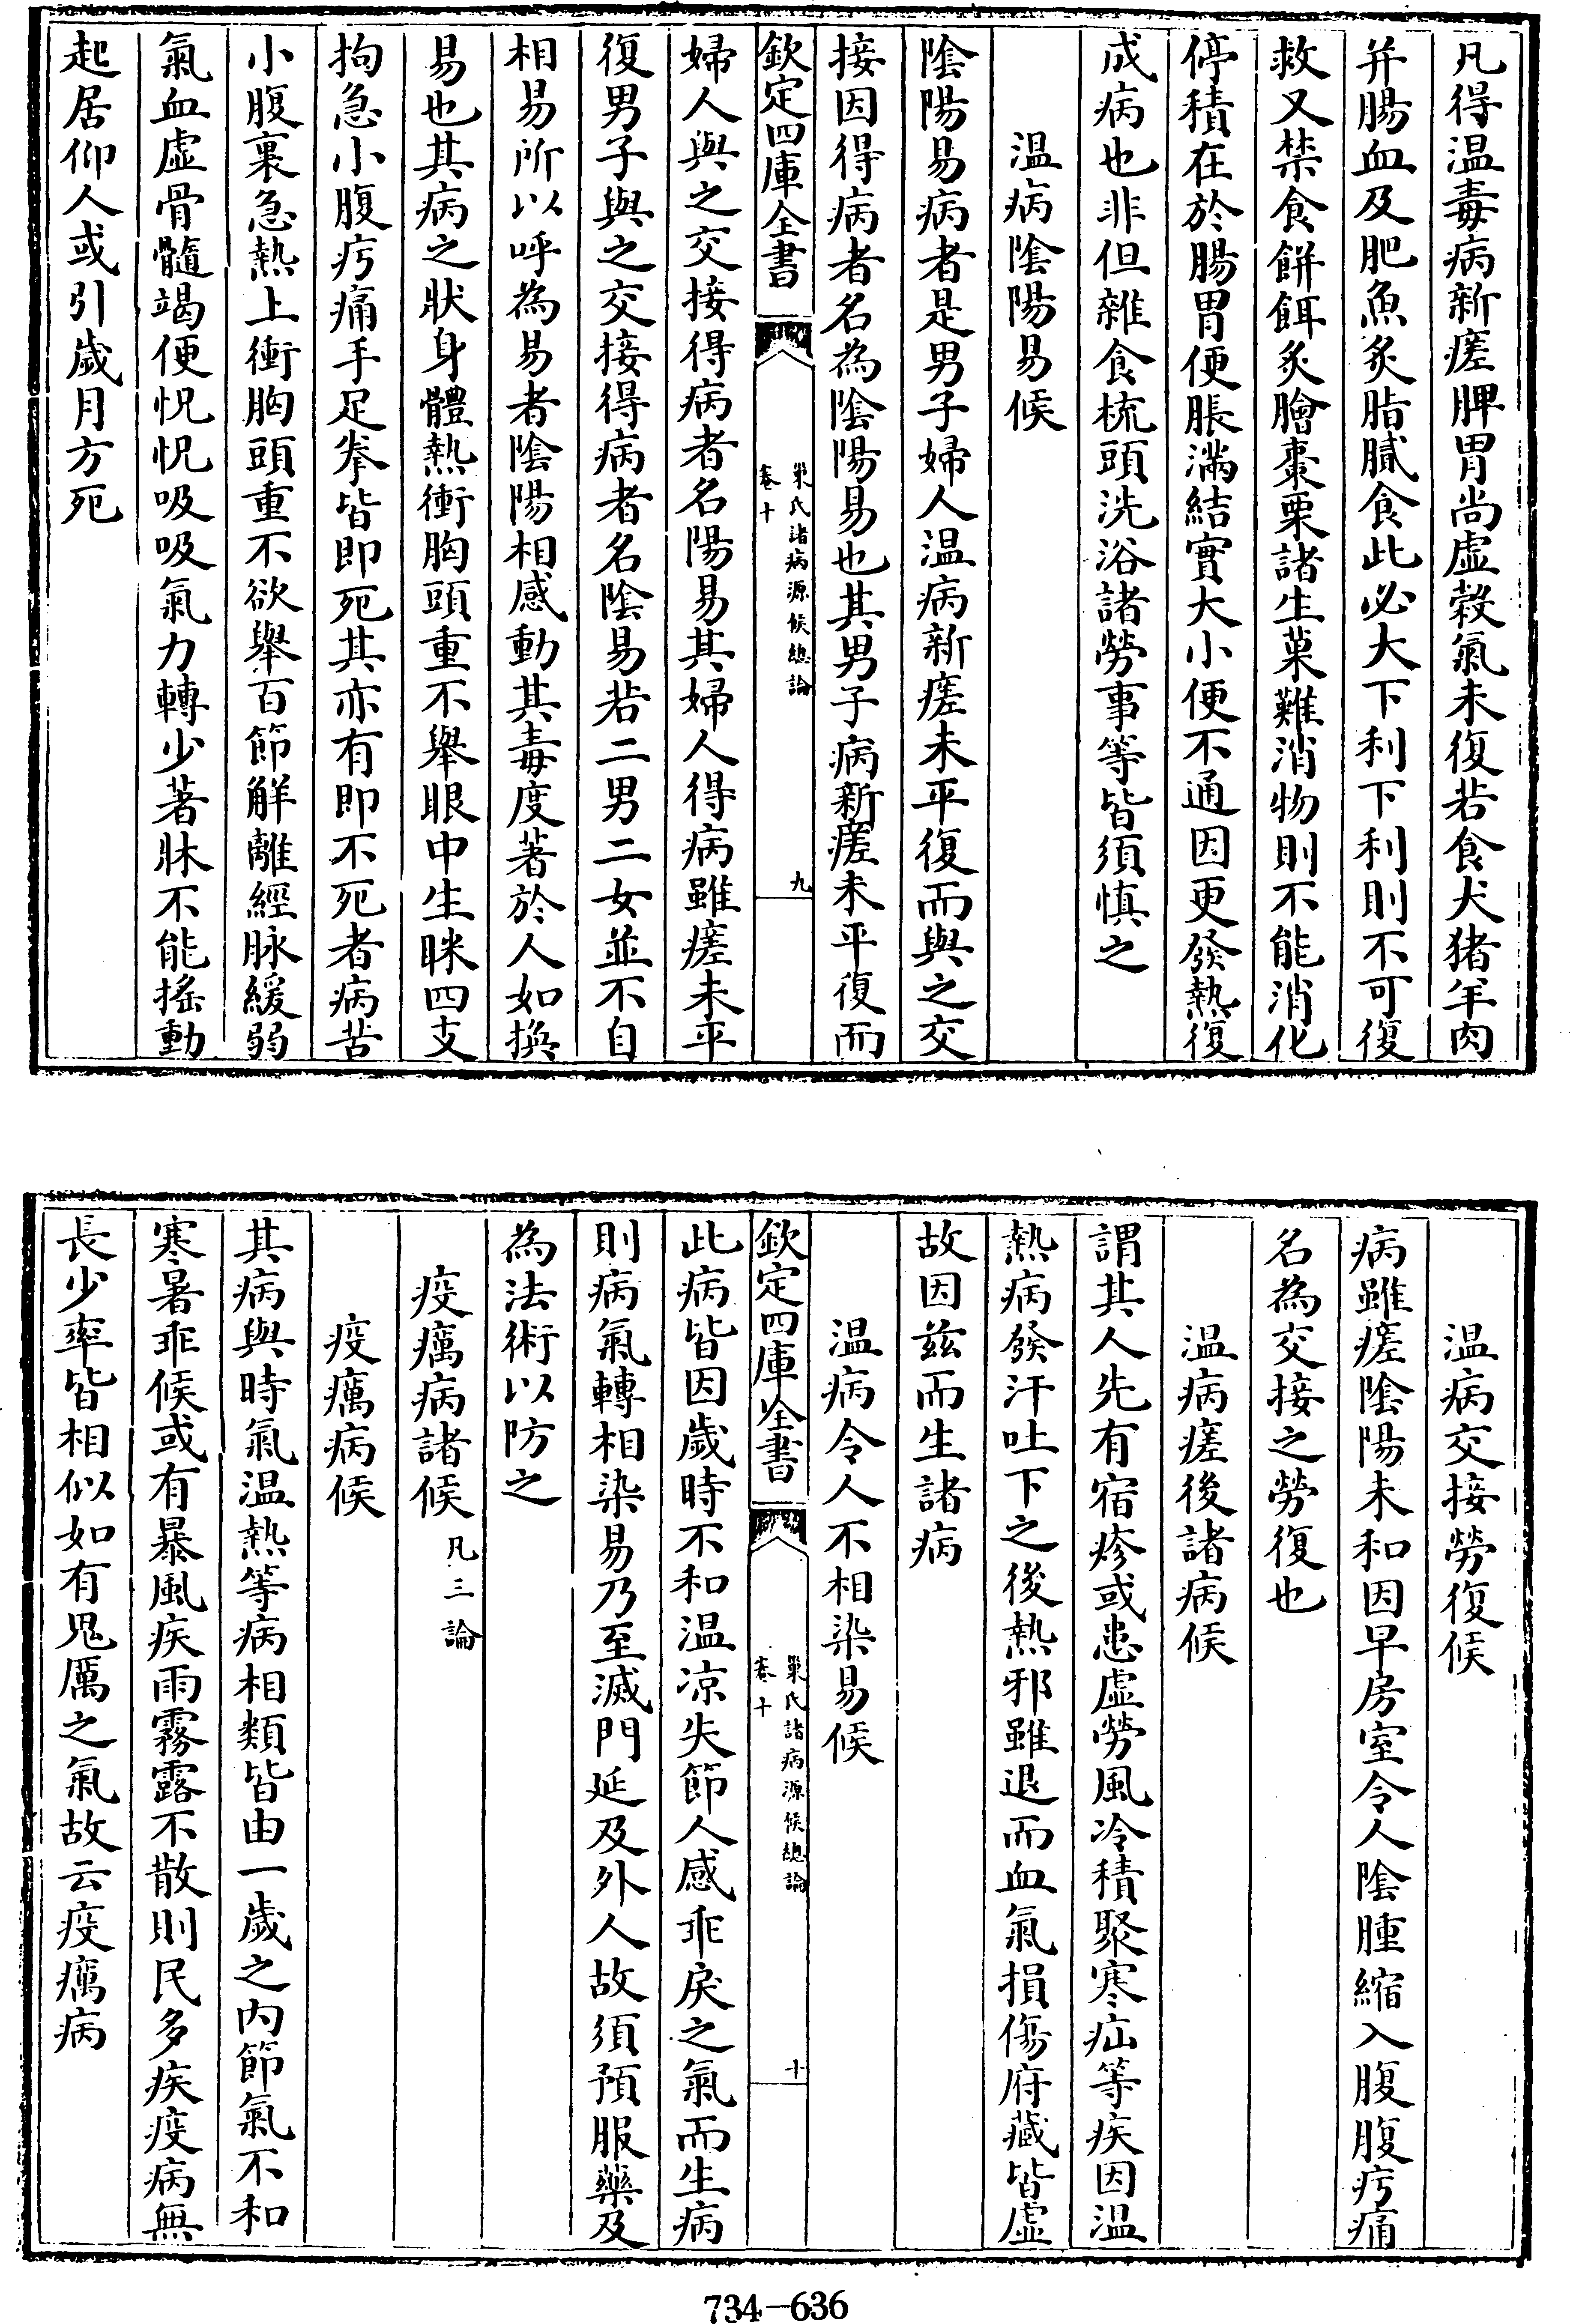 凡得温毒病新瘥脾胃尚虛榖氣未復若食犬猪羊肉
并腸血及肥魚炙脂膩食此必大下利下利則不可復
救又禁食餅餌炙膾棗栗諸生菓難消物則不能消化
停積在於腸胃便脹滿結實大小便不通因更發熱復
成病也非但雜食梳頭洗浴諸勞事等皆須慎之
温病陰陽易候
陰陽易病者是男子婦人温病新瘥未平復而與之交
接因得病者名為陰陽易也其男子病新瘥未平復而
欽定四庫全書
巢氏諸病源候總論
卷十
九
婦人與之交接得病者名陽易其婦人得病雖瘥未平
復男子與之交接得病者名陰易若二男二女並不自
相易所以呼為易者陰陽相感動其毒度著於人如換
易也其病之狀身體熱衝胸頭重不舉眼中生眯四支
拘急小腹㽲痛手足拳皆即死其亦有即不死者病苦
小腹裏急熱上衝胸頭重不欲舉百節解離經脉緩弱
氣血虛骨髓竭便怳怳吸吸氣力轉少著牀不能摇動
起居仰人或引歲月方死
温病交接勞復候
病雖瘥陰陽未和因早房室令人陰腫縮入腹腹㽲痛
名為交接之勞復也
温病瘥後諸病候
謂其人先有宿疹或患虛勞風冷積聚寒疝等疾因温
熱病發汗吐下之後熱邪雖退而血氣損傷府藏皆虛
故因兹而生諸病
温病令人不相染易候
欽定四庫全書
巢氏諸病源候總論
卷十
十
此病皆因歲時不和温凉失節人感乖戾之氣而生病
則病氣轉相染易乃至滅門延及外人故須預服藥及
為法術以防之
疫癘病諸候 凡三論
疫癘病候
其病與時氣温熱等病相類皆由一歲之内節氣不和
寒暑乖候或有暴風疾雨霧露不散則民多疾疫病無
長少率皆相似如有鬼厲之氣故云疫癘病
734—636